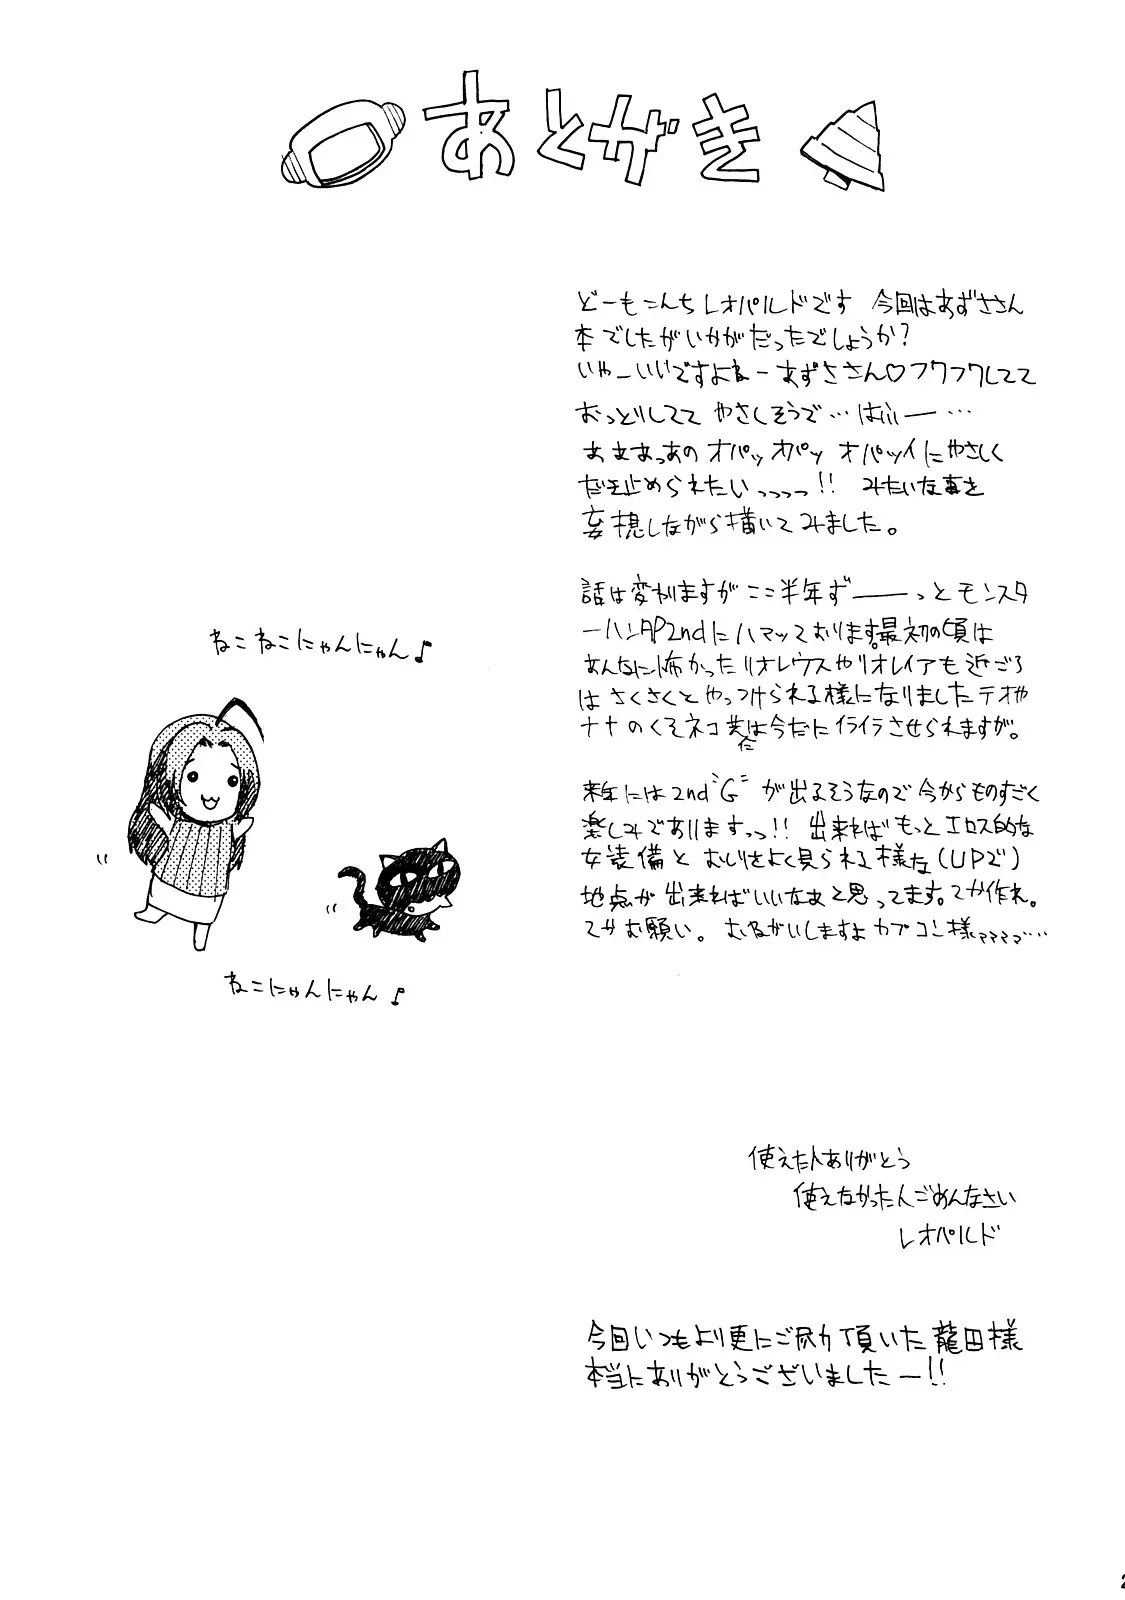 あとがき
どーもこんちレオパルドです 今回はあずささん
本でしたがいかがだったでしょうか?
いやーいいですよねーあずささん♡フワフワしてて
おっとりしてて やさしそうで…はふぅー…
あああっあの オパッオパッ オパッイにやさしく
だき止められたいっっっっ!! みたいな事を
妄想しながら描いてみました。
話は変わりますがここ半年ず――っとモンスタ
ーハンターP2ndにハマッております。最初の頃は
あんなに怖かったリオレウスやリオレイアも近ごろ
はさくさくとやっつけられる様になりましたテオや
ナナのくそネコ共には今だにイライラさせられますが。
来年には2nd"G"が出るそうなので今からものすごく
楽しみでありますっっ!! 出来ればもっとエロス的な
女装備と おしりをよく見られる様な(UPで)
地点が出来ればいいなぁと思ってます。てか作れ。
てかお願い。おねがいしますよカプコン様ァァァァ…
ねこねこにゃんにゃん♪
ねこにゃんにゃん♪
使えた人ありがとう
使えなかった人ごめんなさい
レオパルド
今回いつもより更にご尽力頂いた龍田様
本当にありがとうございましたー!!